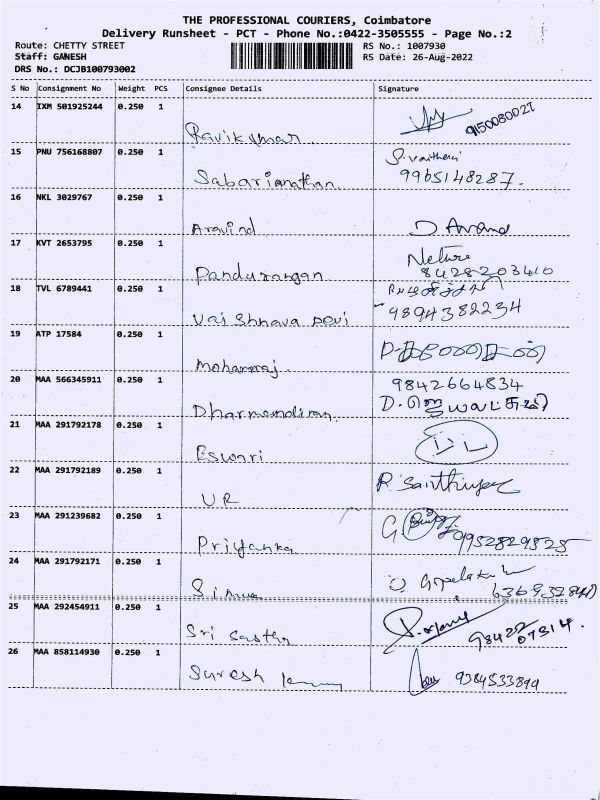 THE PROFESSIONAL COURIERS, Coimbatore
Delivery Runsheet - PCT - Phone No.:0422-3505555 - Page No.:2
Route: CHETTY STREET
RS No.: 1007930
Staff: GANESH
RS Date: 26-Aug-2022
DRS No.: DCJB100793002
S No Consignment No Weight PCS Consignee Details Signature
14 IXM 501925244 0.250 1 Ravikumar 9150080027
15 PNU 756168807 0.250 1 Sabarianathan 9965148287.
16 NKL 3029767 0.250 1 Aravind D Anand
17 KVT 2653795 0.250 1 Pandurangan 8428203410
18 TVL 6789441 0.250 1 Vaishnava Devi 9894382234
19 ATP 17584 0.250 1 Mohanraj
20 MAA 566345911 0.250 1 9842664834
21 MAA 291792178 0.250 1 Eswari
22 MAA 291792189 0.250 1 UR
23 MAA 291239682 0.250 1 Priyanka 9952829525
24 MAA 291792171 0.250 1
25 MAA 292454911 0.250 1 Sri Sastha 98422 07314.
26 MAA 858114930 0.250 1 Suresh 9384533894